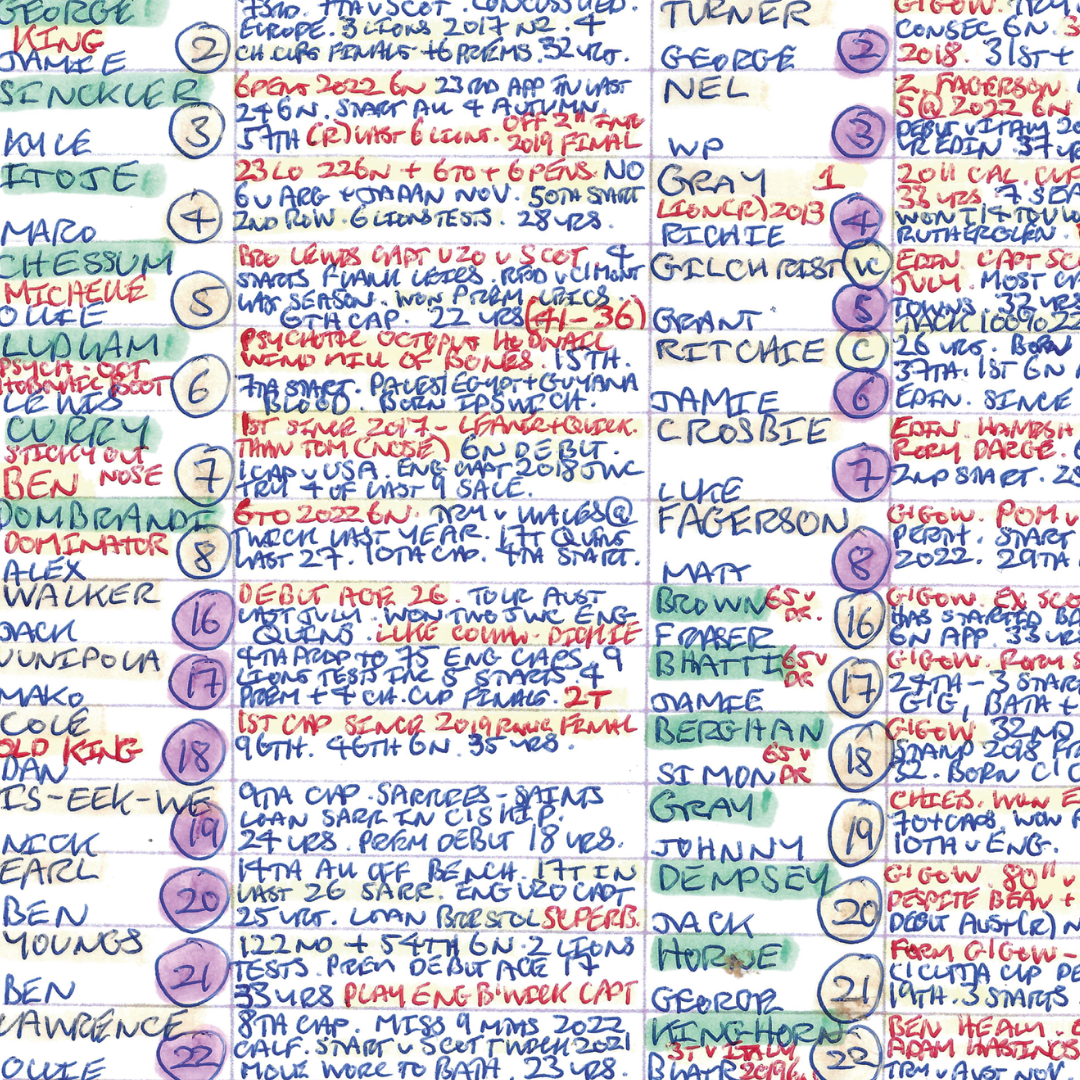 GEORGE
KING
JAMIE
2
73RD. 7TH V SCOT. CONCUSSED.
EUROPE. 3 LIONS 2017 NZ. 4
CH.CUPS FINALS + 6 PREMS. 32 YRS.
TURNER
GEORGE
2
GIGOW. TRY
CONSEC 6N. 3
2018. 31ST +
SINCKLER
KYLE
3
6PENS 2022 6N 23RD APP IN LAST
24 6N. START ALL 4 AUTUMN.
57TH (R) LAST 6 LIONS. OFF 2" IND
2019 FINAL
NEL
WP
3
Z. FAGERSON.
5@2022 6N
DEBUT V ITALY 20
EDIN. 37 YR
ITOJE
MARO
4
23 LO 22 6N + 6TO + 6PENS. NO
6 V ARG + JAPAN NOV. 50TH START
2ND ROW. 6 LIONS TESTS. 28 YRS.
GRAY 1
LION(R) 2013
RICHIE
4
2011 CAL. CUP
33 YRS. 7 SEA
WON T14 TOU
RUTHERGLEN.
CHESSUM
MICHELLE
OLLIE
5
BRO LEWIS CAPT U20 V SCOT 4
STARTS FLANK LEICS. RED V CLMONT
LAST SEASON. WON PREM LEICS.
6TH CAP. 22 YRS (41-36)
GILCHRIST VC
GRANT
5
EDIN. CAPT SC
JULY. MOST C
TOWNS. 32 YRS
TACK 100% 22
LUDLAM
PSYCH. OCT
HOBNAIL BOOT
LEWIS
6
PSYCHOTIC OCTOPUS HOBNAIL
WINDMILL OF BONES. 15TH.
7TH START. PALEST/EGYPT+GUYANA
BLOOD. BORN IPSWICH.
RITCHIE C
JAMIE
6
26 YRS. BORN
37TH. 1ST 6N
EDIN. SINCE
CURRY
STICKY OUT
BEN NOSE
7
1ST SINCE 2017 - LEANER+QUICK.
THAN TOM (NOSE) 6N DEBUT.
1 CAP V USA. ENG CAPT 2018 JWC
TRY 4 OF LAST 9 SALE.
CROSBIE
LUKE
7
EDIN. HAMISH
RORY DARGE.
2ND START. 25
DOMBRANDT
DOMINATOR
ALEX
8
6TO 2022 6N. TRY V WALES@
TWICK LAST YEAR. 17T QUINS
LAST 27. 10TH CAP. 4TH START.
FAGERSON
MATT
8
GIGOW. POM V
PERTH. START
2022. 29TH
WALKER
JACK
16
DEBUT AGE 26. TOUR AUST
LAST JULY. WON TWO JWC ENG
QUINS. LUKE COWW-DICKIE
BROWN 65 V
DR.
FRASER
16
GIGOW. EX SCO
HAS STARTED
6N APP. 33 YR
VUNIPOLA
MAKO
17
4TH PROP TO 75 ENG CAPS. 9
LIONS TESTS INC 5 STARTS. 4
PREM + 4 CH.CUP FINALS. 2T
BHATTI 65V
DR
JAMIE
17
GIGOW. RORY S
27TH - 3 START
GIG, BATH +
COLE
OLD KING
DAN
18
1ST CAP SINCE 2019 RWC FINAL
96TH. 46TH 6N. 35 YRS.
BERGHAN
65 V
SIMON DR
18
GIGOW 32ND
STAND 2018 FR
32. BORN C'C
IS-EEK-WE
NICK
19
9TH CAP. SARRIES-SAINTS
LOAN SARR IN C'SHIP.
24 YRS. PREM DEBUT 18 YRS.
GRAY
JOHNNY
19
CHIEFS. WON E
70+CAPS. WON
10TH V ENG.
EARL
BEN
20
14TH ALL OFF BENCH. 17T IN
LAST 26 SARR. ENG U20 CAPT
25 YRS. LOAN BRISTOL SUPERB.
DEMPSEY
JACK
20
GIGOW. 80" V
DESPITE BEAN +
DEBUT AUST(R) N
YOUNGS
BEN
21
122ND + 54TH 6N. 2 LIONS
TESTS. PREM DEBUT AGE 17
33 YRS PLAY ENG B'WICK CAPT
HORNE
GEORGE
21
FORM GIGOW -
C'CUTTA CUP DE
19TH. 3 STARTS
LAWRENCE
OLLIE
22
8TH CAP. MISS 9 MNS 2022
CALF. START V SCOT TWICK 2021
MOVE WORC TO BATH. 23 YRS.
KINGHORN
3T V ITALY
BLAIR 2019 6N
22
BEN HEALY.
ADAM HASTINGS
TRY V AUST NOV.